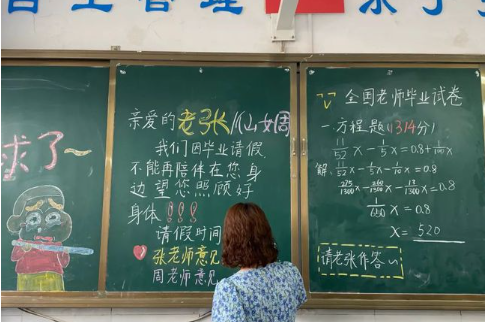 自主管理
求了~
亲爱的老张/仙女周
我们因毕业请假
不能再陪伴在您身
边望您照顾好
身体!!!
请假时间
张老师意见
周老师意见
全国老师毕业试卷
一.方程题(1314分)
11/52 x - 1/5 x = 0.8 + 1/100 x
解: 11/52 x - 1/5 x - 1/100 x = 0.8
275/1300 x - 260/1300 x - 13/1300 x = 0.8
1/650 x = 0.8
x = 520
请老张作答~